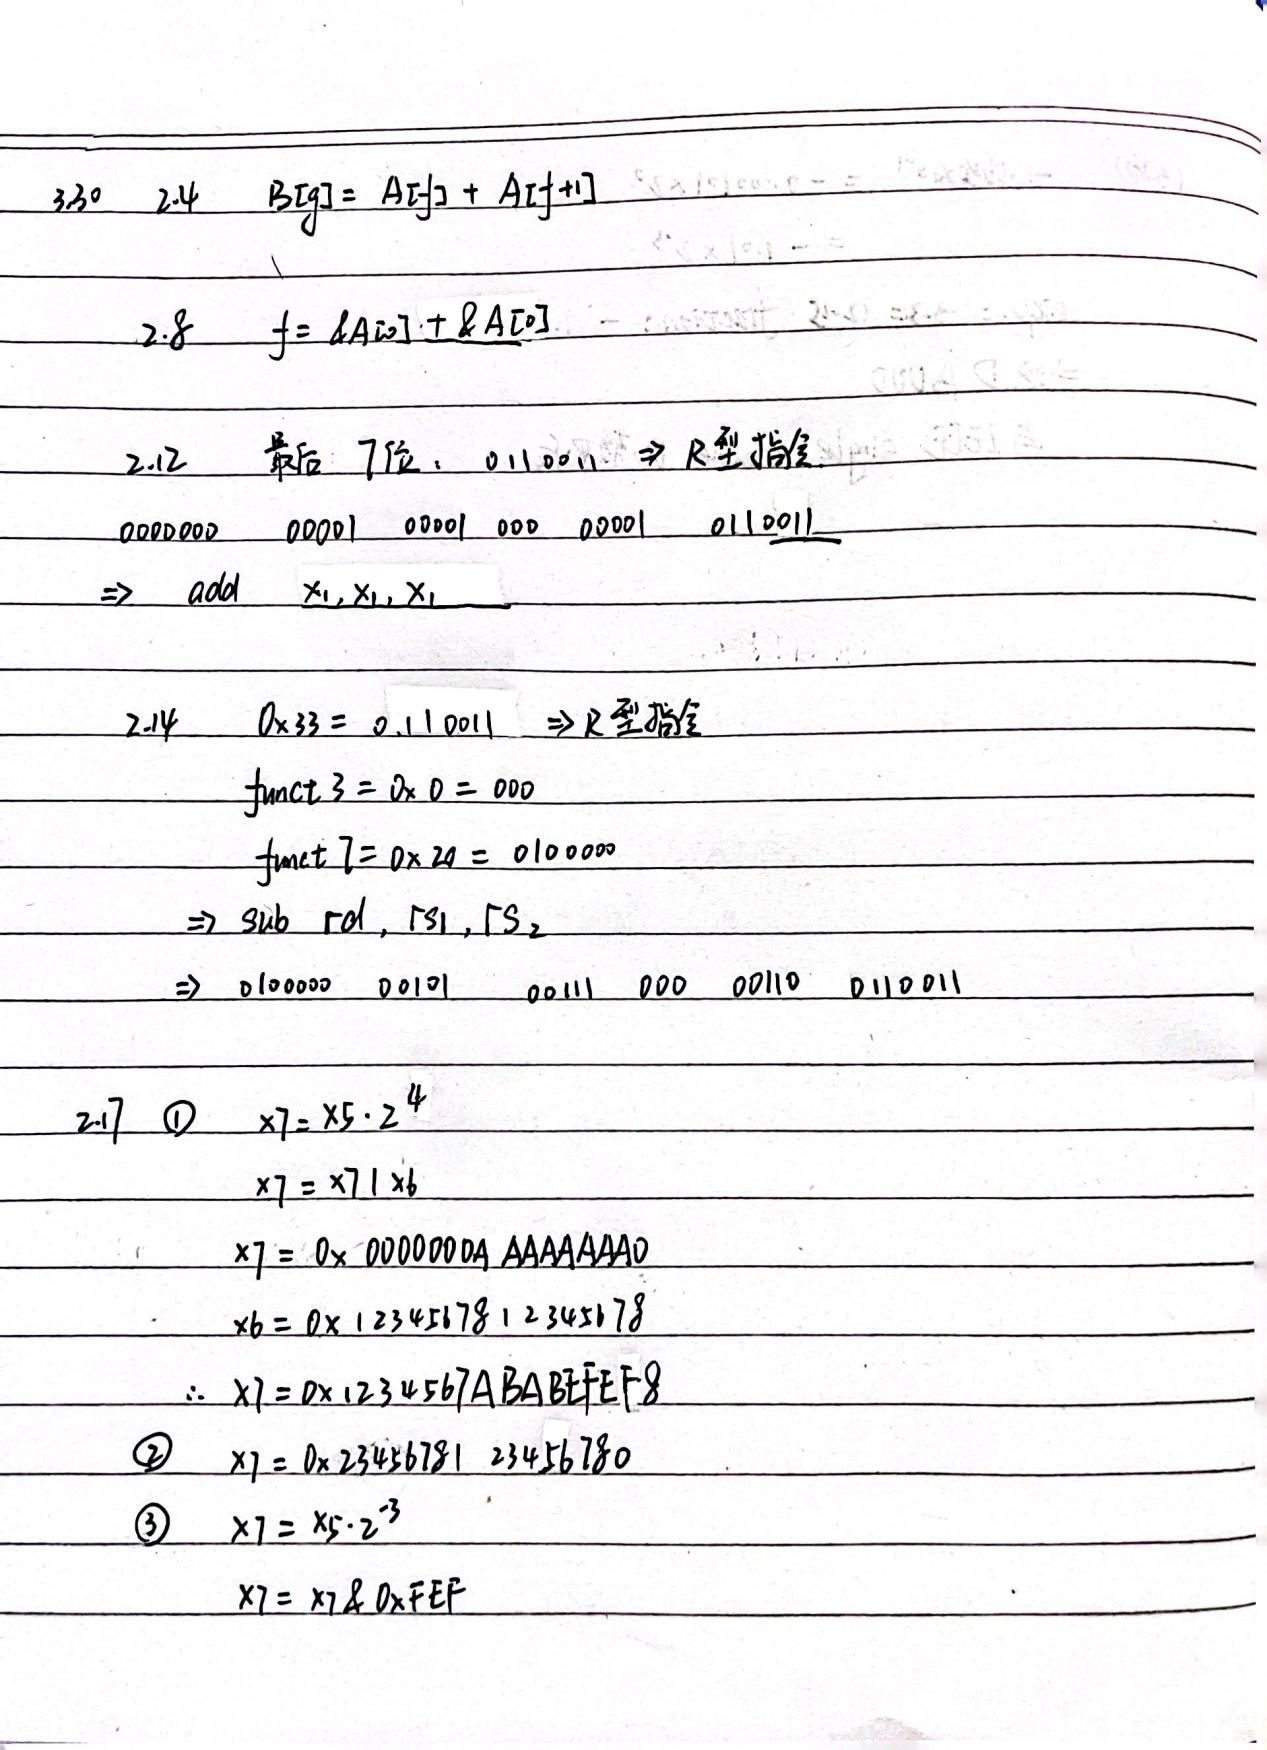 3.30 2.4 B[g] = A[f] + A[f+1]
2.8 f = &A[0] + &A[0]
2.12 最后 7位: 0110011 ⇒ R型指令.
0000000 00001 00001 000 00001 0110011
⇒ add x1, x1, x1
2.14 0x33 = 0.110011 ⇒ R型指令
funct 3 = 0x0 = 000
funct 7 = 0x20 = 0100000
⇒ sub rd, rs1, rs2
⇒ 0100000 00101 00111 000 00110 0110011
2.17 ① x7 = x5·2^4
x7 = x7 | x6
x7 = 0x 0000000A AAAAAAA0
x6 = 0x 1234567812345678
∴ x7 = 0x1234567ABABEFEF8
② x7 = 0x23456781 23456780
③ x7 = x5·2^-3
x7 = x7 & 0xFEF